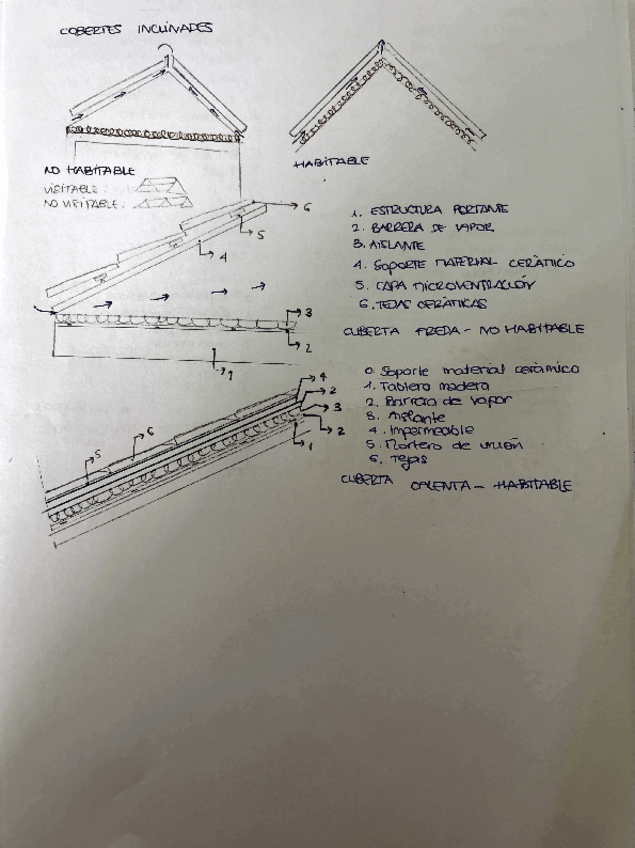 COBERTES INCLINADES
NO HABITABLE
VISITABLE:
NO VISITABLE:
HABITABLE
6
5
4
3
2
1
1. ESTRUCTURA PORTANTE
2. BARRERA DE VAPOR
3. AISLANTE
4. SOPORTE MATERIAL CERÀMICO
5. CAPA MICROVENTRACIÓN
6. TEJAS CERÀTICAS
CUBERTA FREDA - NO HABITABLE
4
2
3
2
1
6
5
0. Soporte material ceràmico
1. Tablero madera
2. Barrera de vapor
3. Aislante
4. Impermeable
5. Mortero de unión
6. Tejas
CUBERTA CALENTA - HABITABLE